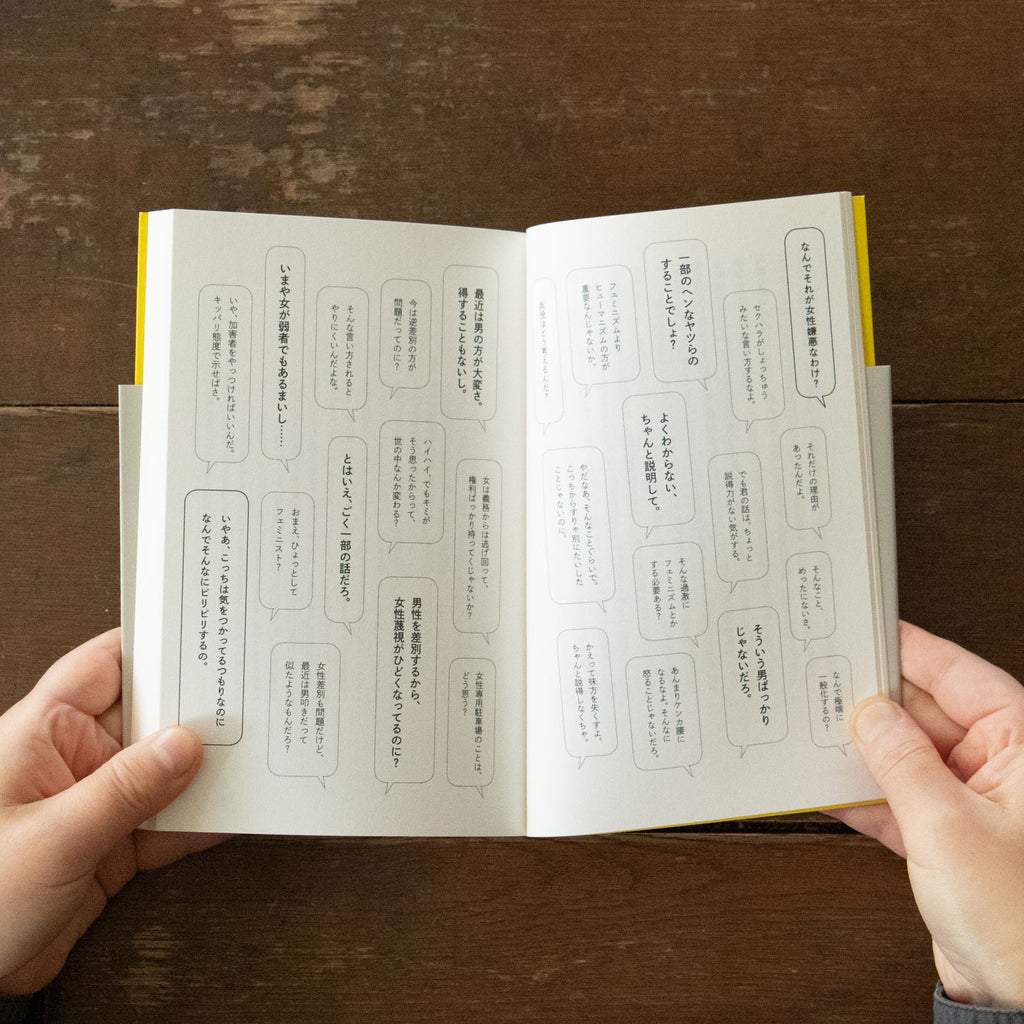 なんでそれが女性嫌悪なわけ？
セクハラがしょっちゅう
みたいな言い方するなよ。
それだけの理由が
あったんだよ。
そんなこと、
めったにないさ。
なんで極端に
一般化するの？
一部のヘンなヤツらの
することでしょ？
でも君の話は、ちょっと
説得力がない気がする。
そういう男ばっかり
じゃないだろ。
フェミニズムより
ヒューマニズムの方が
重要なんじゃないか。
よくわからない、
ちゃんと説明して。
そんな過激に
フェミニズムとか
する必要ある？
あんまりケンカ腰に
なるなよ。そんなに
怒ることじゃないだろ。
兵役はどう考えるんだ？
やだなあ、そんなことぐらいで。
こっちからすりゃ別にたいした
ことじゃないのに。
かえって味方を失くすよ。
ちゃんと説得しなくちゃ。
最近は男の方が大変さ。
得することもないし。
女は義務からは逃げ回って、
権利ばっかり持ってくじゃないか？
女性専用駐車場のことは、
どう思う？
今は逆差別の方が
問題だってのに？
ハイハイ、でもキミが
そう思ったからって、
世の中なんか変わる？
男性を差別するから、
女性蔑視がひどくなってるのに？
そんな言い方されると
やりにくいんだよな。
とはいえ、ごく一部の話だろ。
女性差別も問題だけど、
最近は男叩きだって
似たようなもんだろ？
いまや女が弱者でもあるまいし……
おまえ、ひょっとして
フェミニスト？
いや、加害者をやっつければいいんだ。
キッパリ態度で示せばさ。
いやあ、こっちは気をつかってるつもりなのに
なんでそんなにピリピリするの。